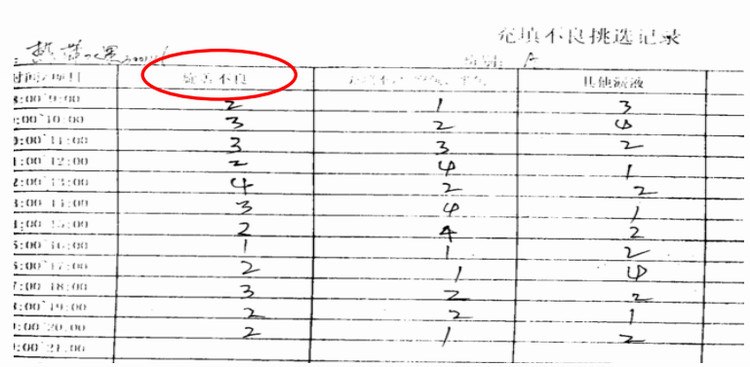 充填不良挑选记录
班别: A
时间/项目 旋盖不良 其他漏液
8:00~9:00 2 1 3
9:00~10:00 3 2 4
10:00~11:00 3 3 2
11:00~12:00 2 4 1
12:00~13:00 4 2 2
13:00~14:00 3 4 1
14:00~15:00 2 4 2
15:00~16:00 1 1 2
16:00~17:00 2 1 4
17:00~18:00 3 2 2
18:00~19:00 2 2 1
19:00~20:00 2 1 2
20:00~21:00